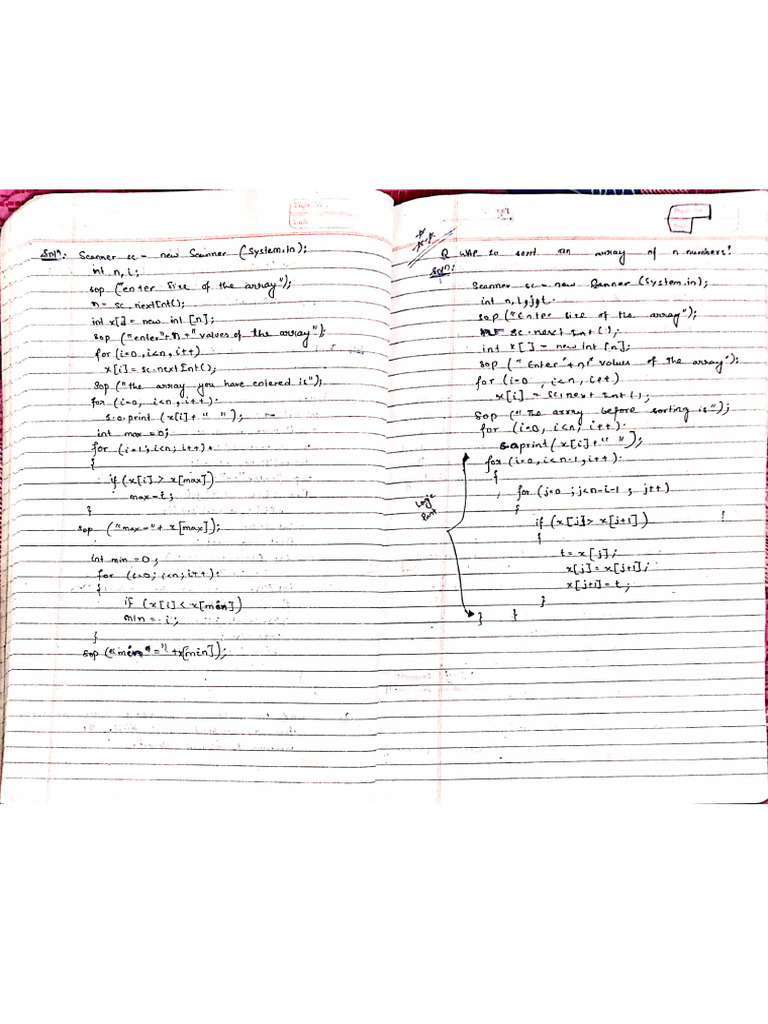 Soln: Scanner sc = new Scanner (System.in);
int n, i;
sop ("enter size of the array");
n = sc.nextInt();
int x[] = new int [n];
sop ("enter"+n+"values of the array");
for (i=0, i<n, i++)
x[i] = sc.nextInt();
sop ("the array you have entered is");
for (i=0, i<n, i++).
s.o.print (x[i]+" ");
int max = 0;
for (i=1; i<n; i++).
{
if (x[i] > x[max])
max = i;
}
sop ("max="+ x[max]);
int min = 0;
for (i=0; i<n; i++).
{
if (x[i] < x[min])
min = i;
}
sop ("min"="+x[min]);
Q WAP to sort an array of n numbers?
Soln:
Scanner sc = new Scanner (System.in);
int n, i, j, t.
sop ("Enter size of the array");
sc.next Int ();
int x[] = new Int [n];
sop ("Enter"+n" values of the array");
for (i=0, i<n, i++)
x[i] = sc.next Int ();
Sop ("The array before sorting is");
for (i=0, i<n; i++).
soprint (x[i]+" ");
for (i=0, i<n-1, i++).
{
for (j=0; j<n-i-1; j++)
{
if (x[j] > x[j+1])
{
t = x[j];
x[j] = x[j+1];
x[j+1] = t;
}
} }
Logic
Part